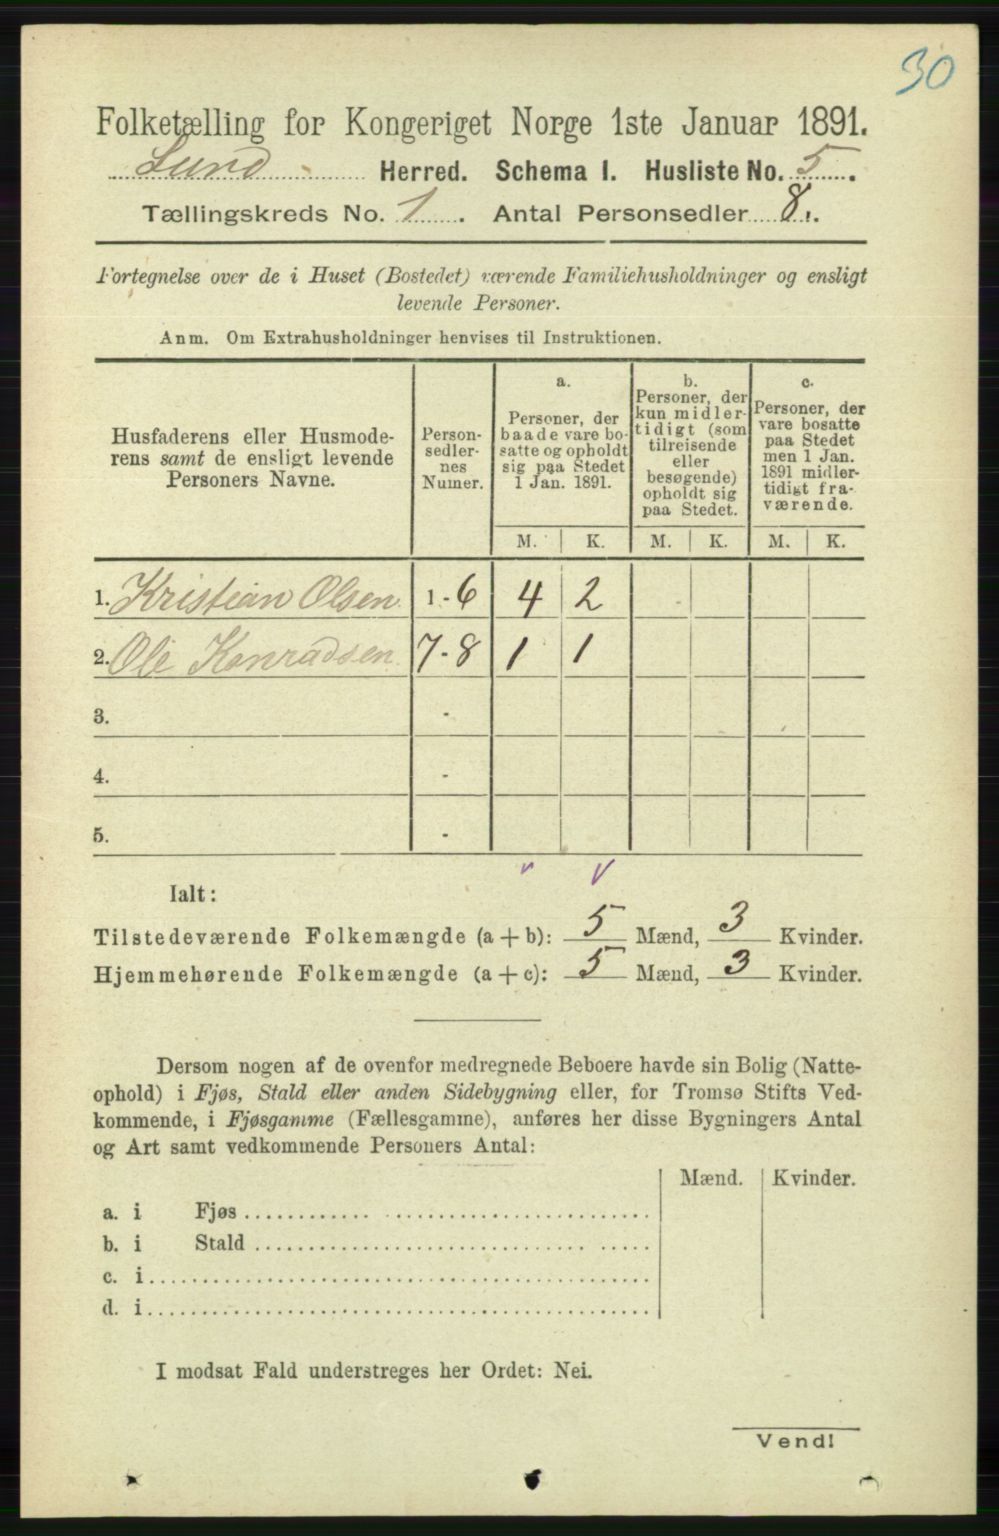 30
Folketælling for Kongeriget Norge 1ste Januar 1891.
Lund Herred. Schema I. Husliste No. 5.
Tællingskreds No. 1. Antal Personsedler 8.
Fortegnelse over de i Huset (Bostedet) værende Familiehusholdninger og ensligt
levende Personer.
Anm. Om Extrahusholdninger henvises til Instruktionen.
Husfaderens eller Husmode-
rens samt de ensligt levende
Personers Navne.
Person-
sedler-
nes
Numer.
a.
Personer, der
baade vare bo-
satte og opholdt
sig paa Stedet
1 Jan. 1891.
b.
Personer, der
kun midler-
tidigt (som
tilreisende
eller
besøgende)
opholdt sig
paa Stedet.
c.
Personer, der
vare bosatte
paa Stedet
men 1 Jan.
1891 midler-
tidigt fra-
værende.
M. K. M. K. M. K.
1. Kristian Olsen 1-6 4 2
2. Ole Konradsen 7-8 1 1
3. -
4. -
5. -
Ialt:
Tilstedeværende Folkemængde (a + b): 5 Mænd, 3 Kvinder.
Hjemmehørende Folkemængde (a + c): 5 Mænd, 3 Kvinder.
Dersom nogen af de ovenfor medregnede Beboere havde sin Bolig (Natte-
ophold) i Fjøs, Stald eller anden Sidebygning eller, for Tromsø Stifts Ved-
kommende, i Fjøsgamme (Fællesgamme), anføres her disse Bygningers Antal
og Art samt vedkommende Personers Antal:
Mænd. Kvinder.
a. i Fjøs
b. i Stald
c. i
d. i
I modsat Fald understreges her Ordet: Nei.
Vend!